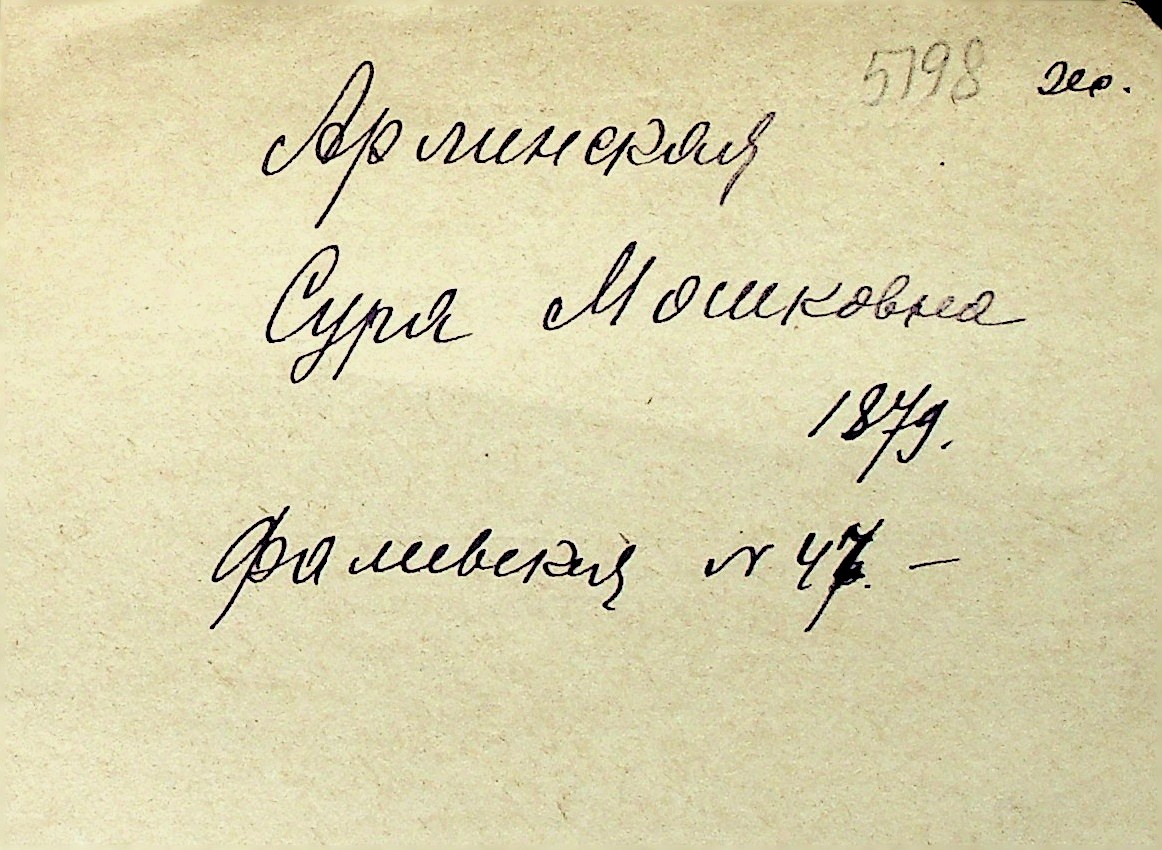 5198 ж.
Арлинская
Сура Мошковна
1879.
Фалевская № 47. —